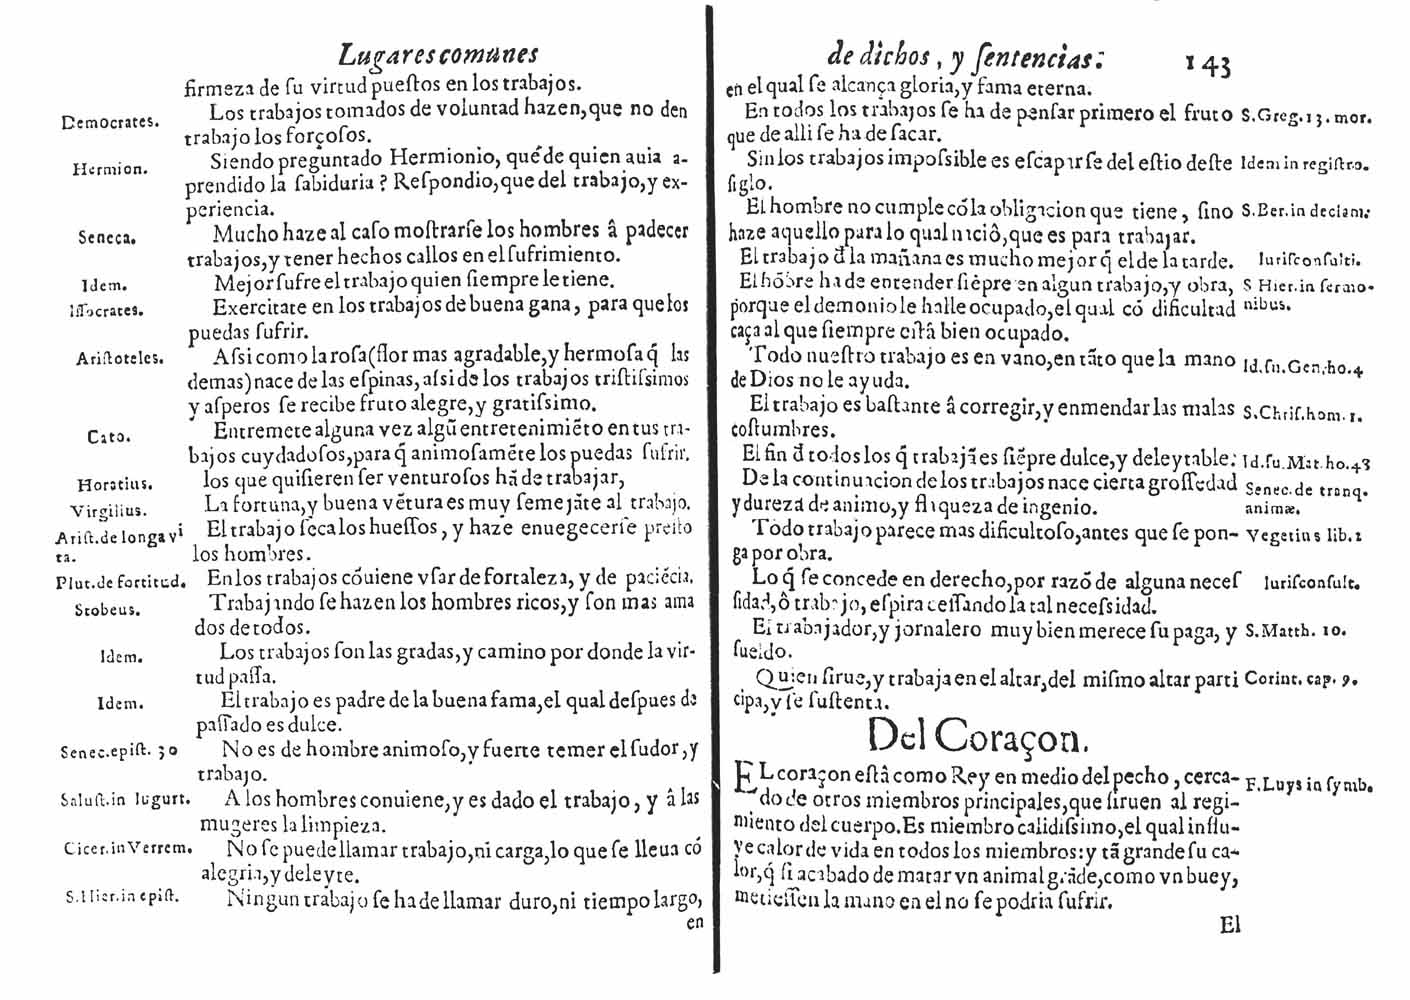 Lugares comunes
firmeza de ſu virtud pueſtos en los trabajos.
Democrates. Los trabajos tomados de voluntad hazen, que no den
trabajo los forçoſos.
Hermion. Siendo preguntado Hermionio, que̓ de quien auia a-
prendido la ſabiduria? Reſpondio, que del trabajo, y ex-
periencia.
Seneca. Mucho haze al caſo moſtrarſe los hombres â padecer
trabajos, y tener hechos callos en el ſufrimiento.
Idem. Mejor ſufre el trabajo quien ſiempre le tiene.
Iſſocrates. Exercitate en los trabajos de buena gana, para que los
puedas ſufrir.
Ariſtoteles. Aſsi como la roſa (flor mas agradable, y hermoſa q̃ las
demas) nace de las eſpinas, aſsi de los trabajos triſtiſsimos
y aſperos ſe recibe fruto alegre, y gratiſsimo.
Cato. Entremete alguna vez algũ entretenimiẽto en tus tra-
bajos cuydadoſos, para q̃ animoſamẽte los puedas ſufrir.
Horatius. los que quiſieren ſer venturoſos hã de trabajar,
Virgilius. La fortuna, y buena vẽtura es muy ſemejãte al trabajo.
Ariſt. de longa vi El trabajo ſeca los hueſſos, y haze enuegecerſe preſto
ta. los hombres.
Plut. de fortitud. En los trabajos cóuiene vſar de fortaleza, y de paciécia.
Stobeus. Trabajando ſe hazen los hombres ricos, y ſon mas ama
dos de todos.
Idem. Los trabajos ſon las gradas, y camino por donde la vir-
tud paſſa.
Idem. El trabajo es padre de la buena fama, el qual deſpues de
paſſado es dulce.
Senec. epiſt. 30 No es de hombre animoſo, y fuerte temer el ſudor, y
trabajo.
Saluſt. in Iugurt. A los hombres conuiene, y es dado el trabajo, y â las
mugeres la limpieza.
Cicer. in Verrem. No ſe puede llamar trabajo, ni carga, lo que ſe lleua có
alegria, y deleyte.
S. Hier. in epiſt. Ningun trabajo ſe ha de llamar duro, ni tiempo largo,
en
de dichos, y ſentencias: 143
en el qual ſe alcança gloria, y fama eterna.
En todos los trabajos ſe ha de penſar primero el fruto S. Greg. 13. mor.
que de alli ſe ha de ſacar.
Sin los trabajos impoſsible es eſcaparſe del eſtio deſte Idem in regiſtro.
ſiglo.
El hombre no cumple cõ la obligacion que tiene, ſino S. Ber. in declam:
haze aquello para lo qual naciô, que es para trabajar.
El trabajo đ la mañana es mucho mejor q̃ el de la tarde. Iuriſconſulti.
El hõbre ha de entender ſiẽpre en algun trabajo, y obra, S Hier. in ſermo-
porque el demonio le halle ocupado, el qual có dificultad nibus.
caça al que ſiempre eſtá bien ocupado.
Todo nueſtro trabajo es en vano, en tãto que la mano Id. ſu. Gen. ho. 4
de Dios no le ayuda.
El trabajo es baſtante â corregir, y enmendar las malas S. Chriſ. hom. 1.
coſtumbres.
El fin đ todos los q̃ trabajã es ſiẽpre dulce, y deleytable: Id. ſu. Mat. ho. 43
De la continuacion de los trabajos nace cierta groſſedad Senec. de tranq.
y dureza de animo, y flaqueza de ingenio. animæ.
Todo trabajo parece mas dificultoſo, antes que ſe pon- Vegetius lib. 2
ga por obra.
Lo q̃ ſe concede en derecho, por razõ de alguna neceſ Iuriſconſult.
ſidad, ô trabajo, eſpira ceſſando la tal neceſsidad.
El trabajador, y jornalero muy bien merece ſu paga, y S. Matth. 10.
ſueldo.
Quien ſirue, y trabaja en el altar, del miſmo altar parti Corint. cap. 9.
cipa, y ſe ſuſtenta.
Del Coraçon.
EL coraçon eſtâ como Rey en medio del pecho, cerca- F. Luys in ſymb.
do de otros miembros principales, que ſiruen al regi-
miento del cuerpo. Es miembro calidiſsimo, el qual influ-
ye calor de vida en todos los miembros: y tã grande ſu ca-
lor, q̃ ſi acabado de matar vn animal grãde, como vn buey,
metieſſen la mano en el no ſe podria ſufrir.
El